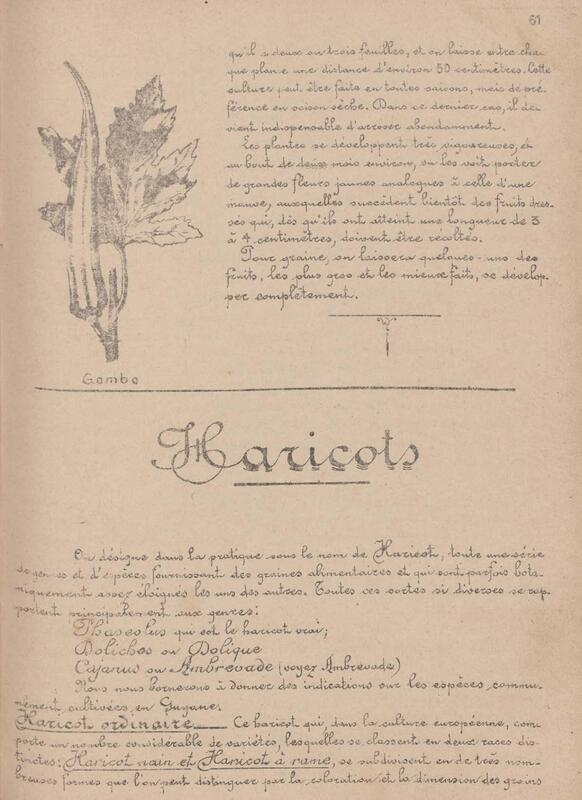 61
qu'il a deux ou trois feuilles, et on laisse entre cha-
que plante une distance d'environ 50 centimètres. Cette
culture peut être faite en toutes saisons, mais de pré-
férence en saison sèche. Dans ce dernier cas, il de-
vient indispensable d'arroser abondamment.
Les plantes se développent très vigoureuses, et
au bout de deux mois environ, on les voit porter
de grandes fleurs jaunes analogues à celle d'une
mauve, auxquelles succèdent bientôt des fruits dres-
sés qui, dès qu'ils ont atteint une longueur de 3
à 4 centimètres, doivent être récoltés.
Pour graine, on laissera quelques-uns des
fruits, les plus gros et les mieux faits, se dévelop-
per complètement.
Gombo
Haricots
On désigne dans la pratique sous le nom de Haricot, toute une série
de genres et d'espèces fournissant des graines alimentaires et qui sont parfois bota-
niquement assez éloignés les uns des autres. Toutes ces sortes si diverses se rap-
portent principalement aux genres:
Phaseolus qui est le haricot vrai;
Dolichos ou Dolique
Cajanus ou Ambrevade (voyez Ambrevade)
Nous nous bornerons à donner des indications sur les espèces commu-
nément cultivées en Guyane.
Haricot ordinaire Ce haricot qui, dans la culture européenne, com-
porte un nombre considérable de variétés, lesquelles se classent en deux races dis-
tinctes: Haricot nain et Haricot à rame, se subdivisent en de très nom-
breuses formes que l'on peut distinguer par la coloration et la dimension des grains